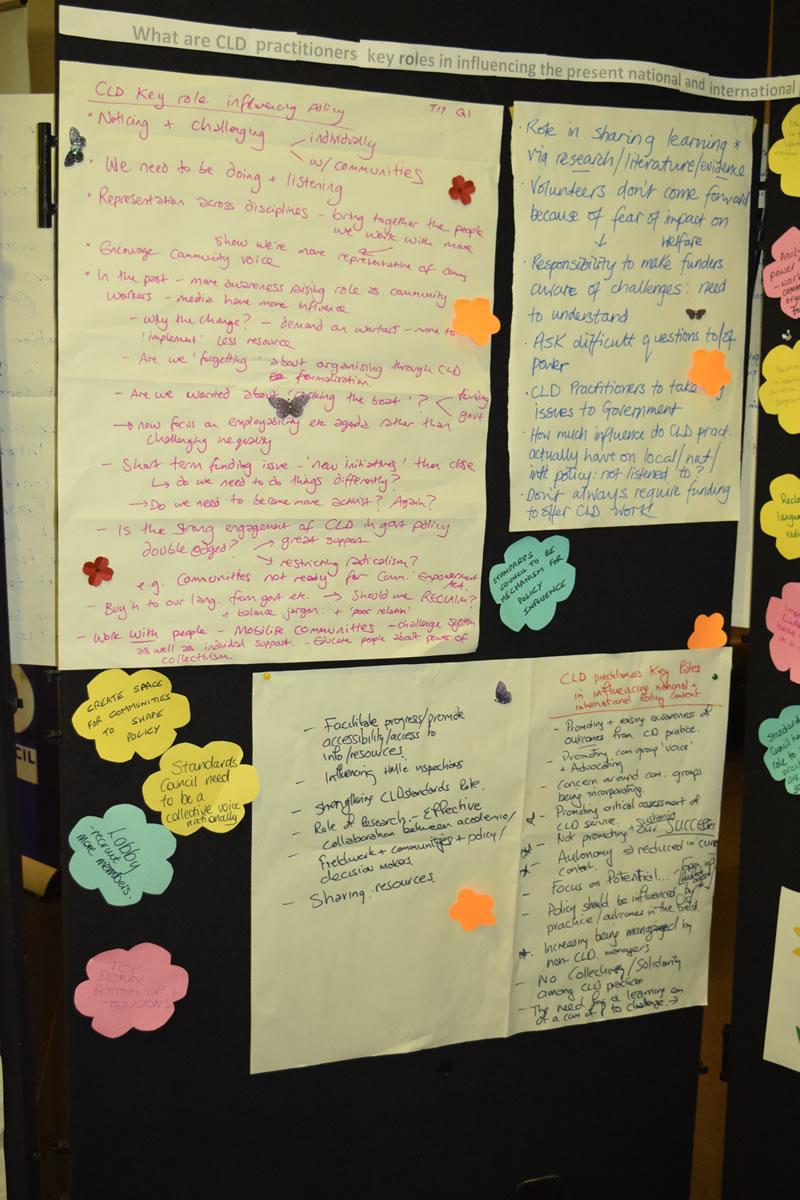 What are CLD practitioners key roles in influencing the present national and international
CLD Key role influencing policy
T17 Q1
• Noticing + challenging
individually
w/ communities
• We need to be doing + listening
• Representation across disciplines - bring together the people
we work with more
show we're more representative of comm
• Encourage Community voice
• In the past - more awareness raising role as community
workers - media have more influence
- Why the change? - demand on workers - more to
'implement' less resource
- Are we 'forgetting' about organising through CLD
formalisation
- Are we worried about the boat'?
funding
govt
→ now focus on employability etc agenda rather than
challenging inequality
- Short term funding issue - 'new initiatives' then close
↳ do we need to do things differently?
→ Do we need to become more activist? Again?
- Is the strong engagement of CLD in govt policy
double edged? → great support
→ restricting radicalism?
e.g. Communities not ready for Comm. Empowerment Act.
- Buy in to our lang. from govt etc. → Should we RECLAIM?
+ balance jargon. +
- Work with people - Mobilise Communities - challenge system
as well as individual support. - Educate people about power of
collectivism.
• Role in sharing learning *
via research/literature/evidence
• Volunteers don't come forward
because of fear of impact on
↓ Welfare
• Responsibility to make funders
aware of challenges: need
to understand
• ASK difficult questions to/of
power
• CLD Practitioners to take
issues to Government
• How much influence do CLD pract.
actually have on local/nat/
intl. policy: not listened to?
• Don't always require funding
to offer CLD work
STANDARDS
COUNCIL TO BE
MECHANISM FOR
POLICY
INFLUENCE
CREATE SPACE
FOR COMMUNITIES
TO SHAPE
POLICY
Standards
Council need
to be a
collective voice
nationally
Lobby
- recruit
more members.
TOP
DOWN
BOTTOM UP
TENSIONS
- Facilitate progress/promote
accessibility/access to
info/resources.
- Influencing HMIe inspections
- Strengthening CLD standards Role.
- Role of Research - Effective
collaboration between academie/
fieldwork + communities + policy/
decision makers
- Sharing resources
CLD practitioners Key Roles
in influencing national +
international Policy Context
- Promoting + easing awareness of
outcomes from CLD practice.
- Promoting com group 'voice'
+ Advocating
- Concern around com. groups
being incorporating.
- Promoting critical assessment of
CLD service.
Not promoting + our SUCCESS
Autonomy → reduced in
context.
- Focus on Potential...
- Policy should be influenced by
practice/outcomes in the field
* Increasing being managed by
non CLD. managers
- No Collectivity/Solidarity
among CLD practice
- The need for a learning